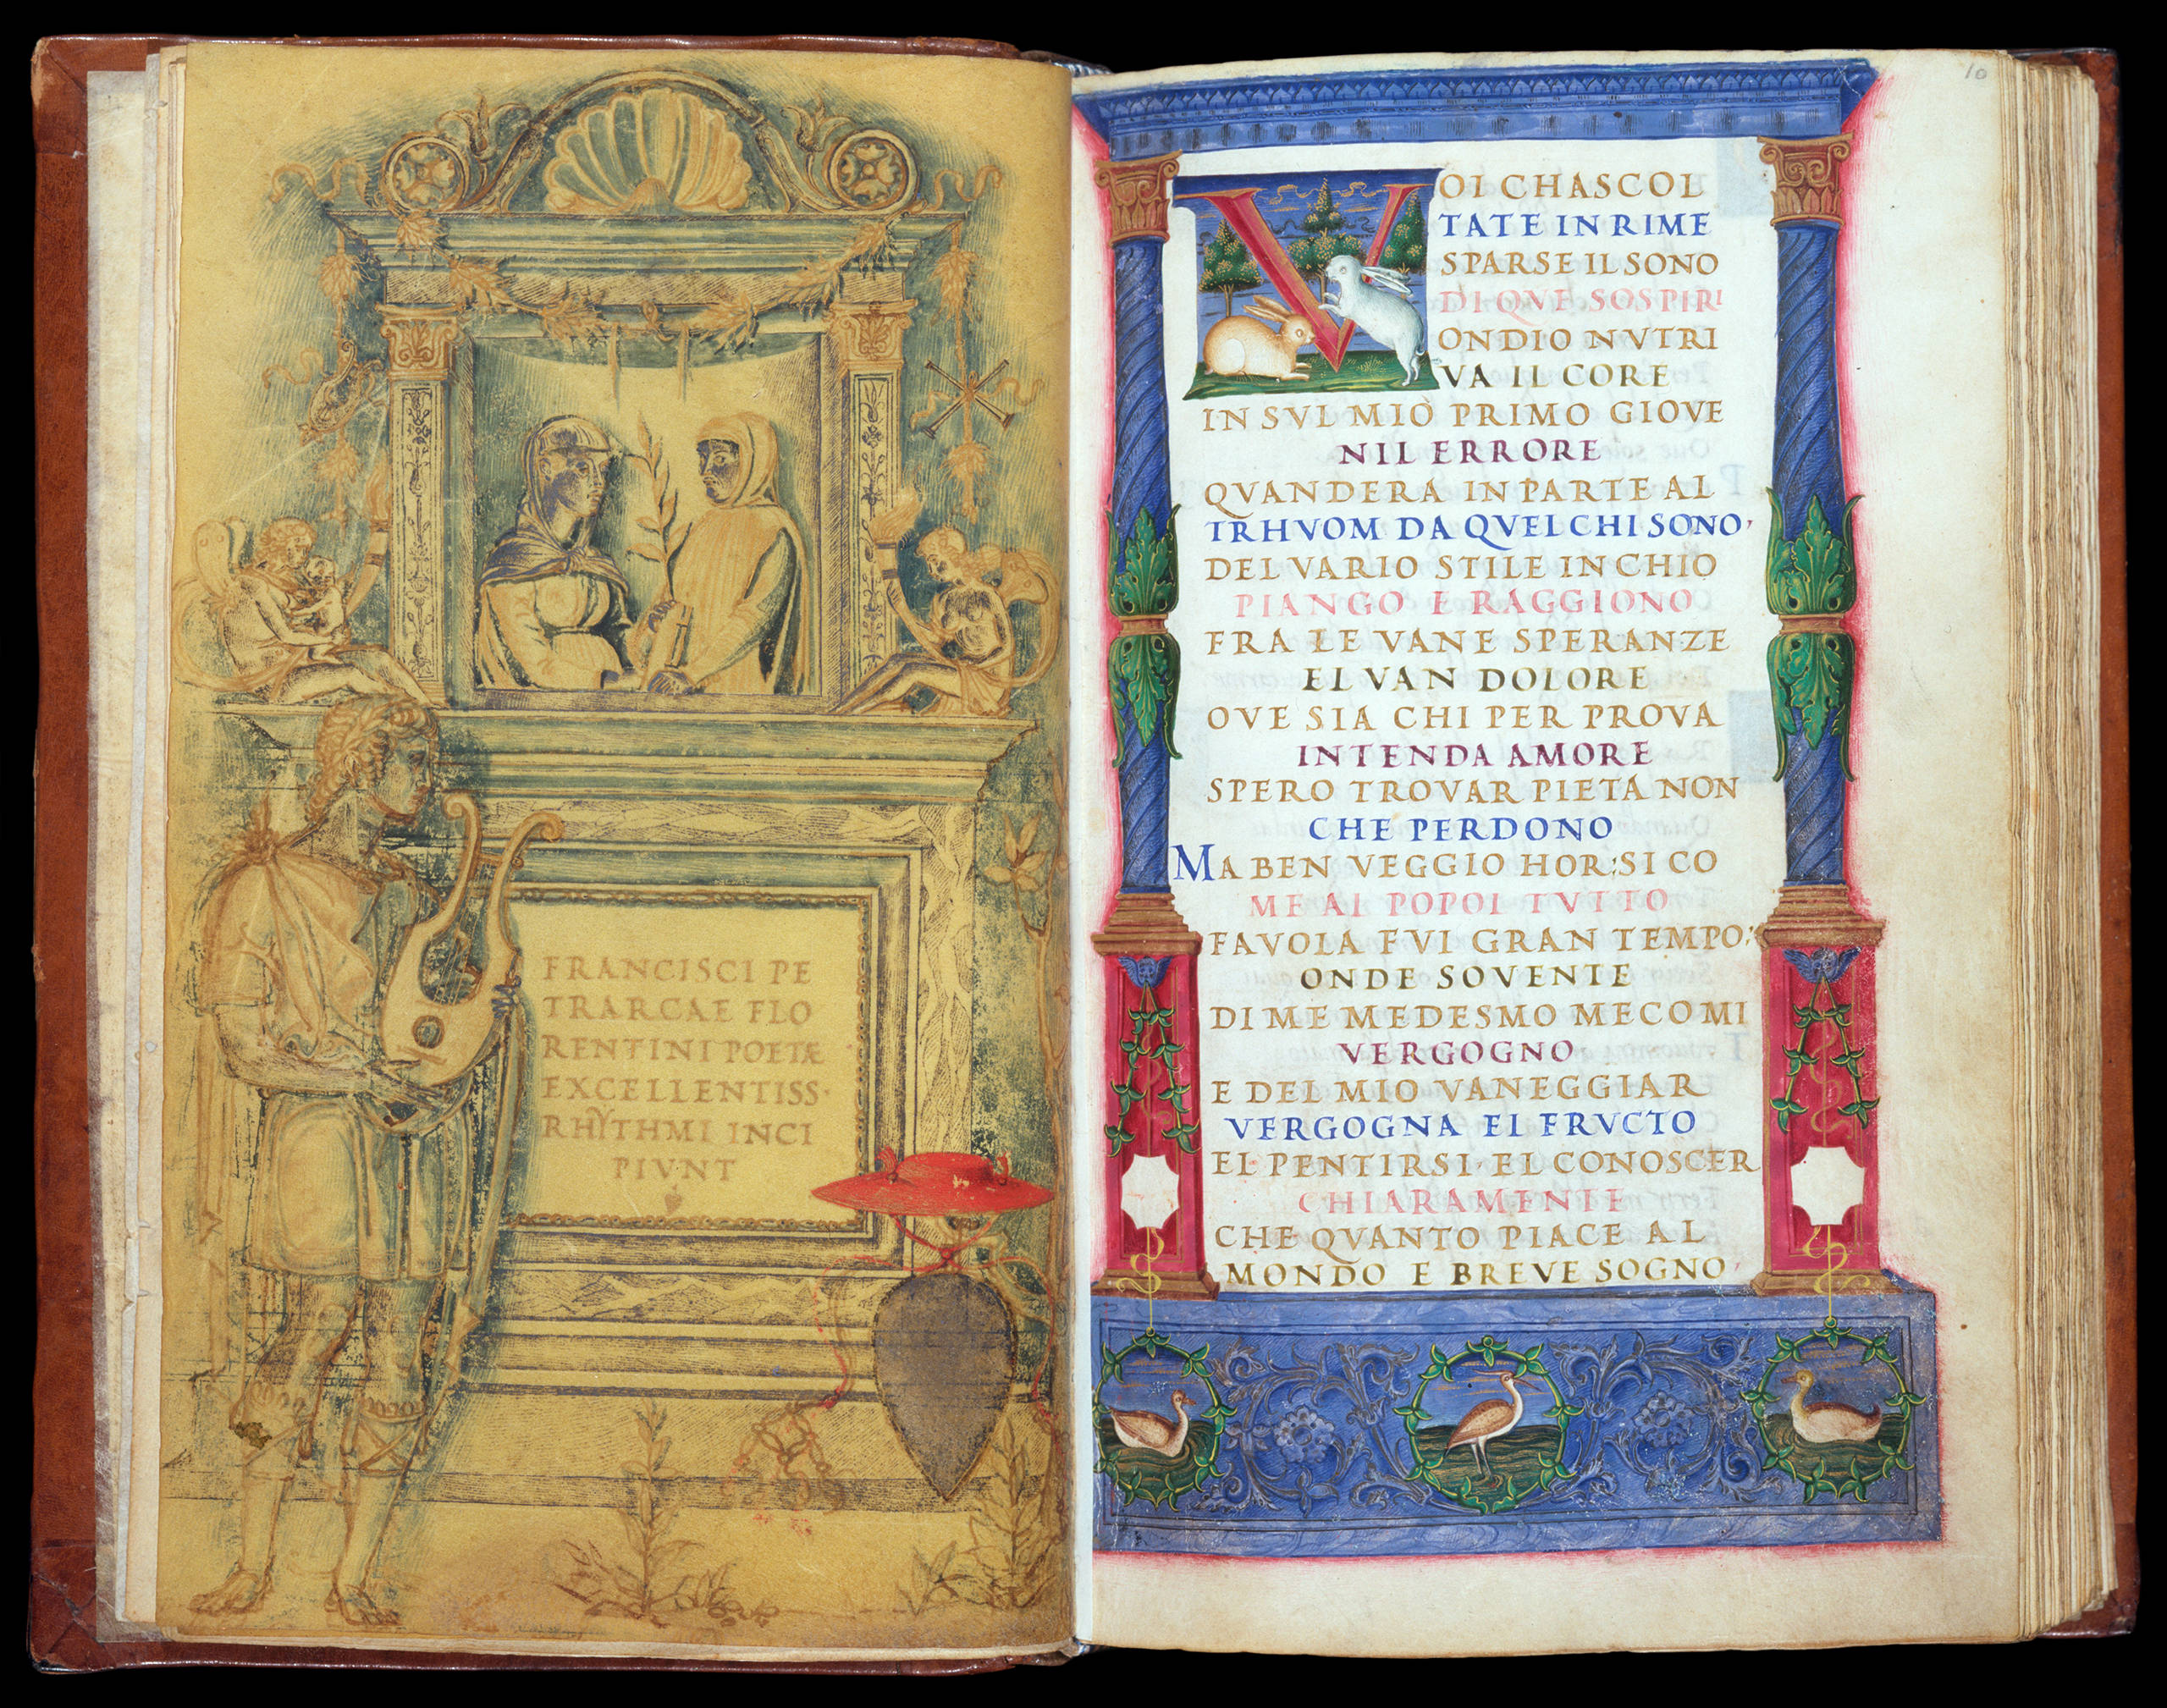 FRANCISCI PE
TRARCAE FLO
RENTINI POETÆ
EXCELLENTISS·
RHYTHMI INCI
PIVNT
10
VOI CHASCOL
TATE IN RIME
SPARSE IL SONO
DI QVE SOSPIRI
ONDIO NVTRI
VA IL CORE
IN SVL MIO PRIMO GIOVE
NIL ERRORE
QVANDERA IN PARTE AL
TRHVOM DA QVEL CHI SONO·
DEL VARIO STILE IN CHIO
PIANGO E RAGGIONO
FRA LE VANE SPERANZE
EL VAN DOLORE
OVE SIA CHI PER PROVA
INTENDA AMORE
SPERO TROVAR PIETA NON
CHE PERDONO
MA BEN VEGGIO HOR: SI CO
ME AL POPOL TVTTO
FAVOLA FVI GRAN TEMPO:
ONDE SOVENTE
DI ME MEDESMO MECO MI
VERGOGNO
E DEL MIO VANEGGIAR
VERGOGNA EL FRVCTO
EL PENTIRSI· EL CONOSCER
CHIARAMENTE
CHE QVANTO PIACE AL
MONDO E BREVE SOGNO·